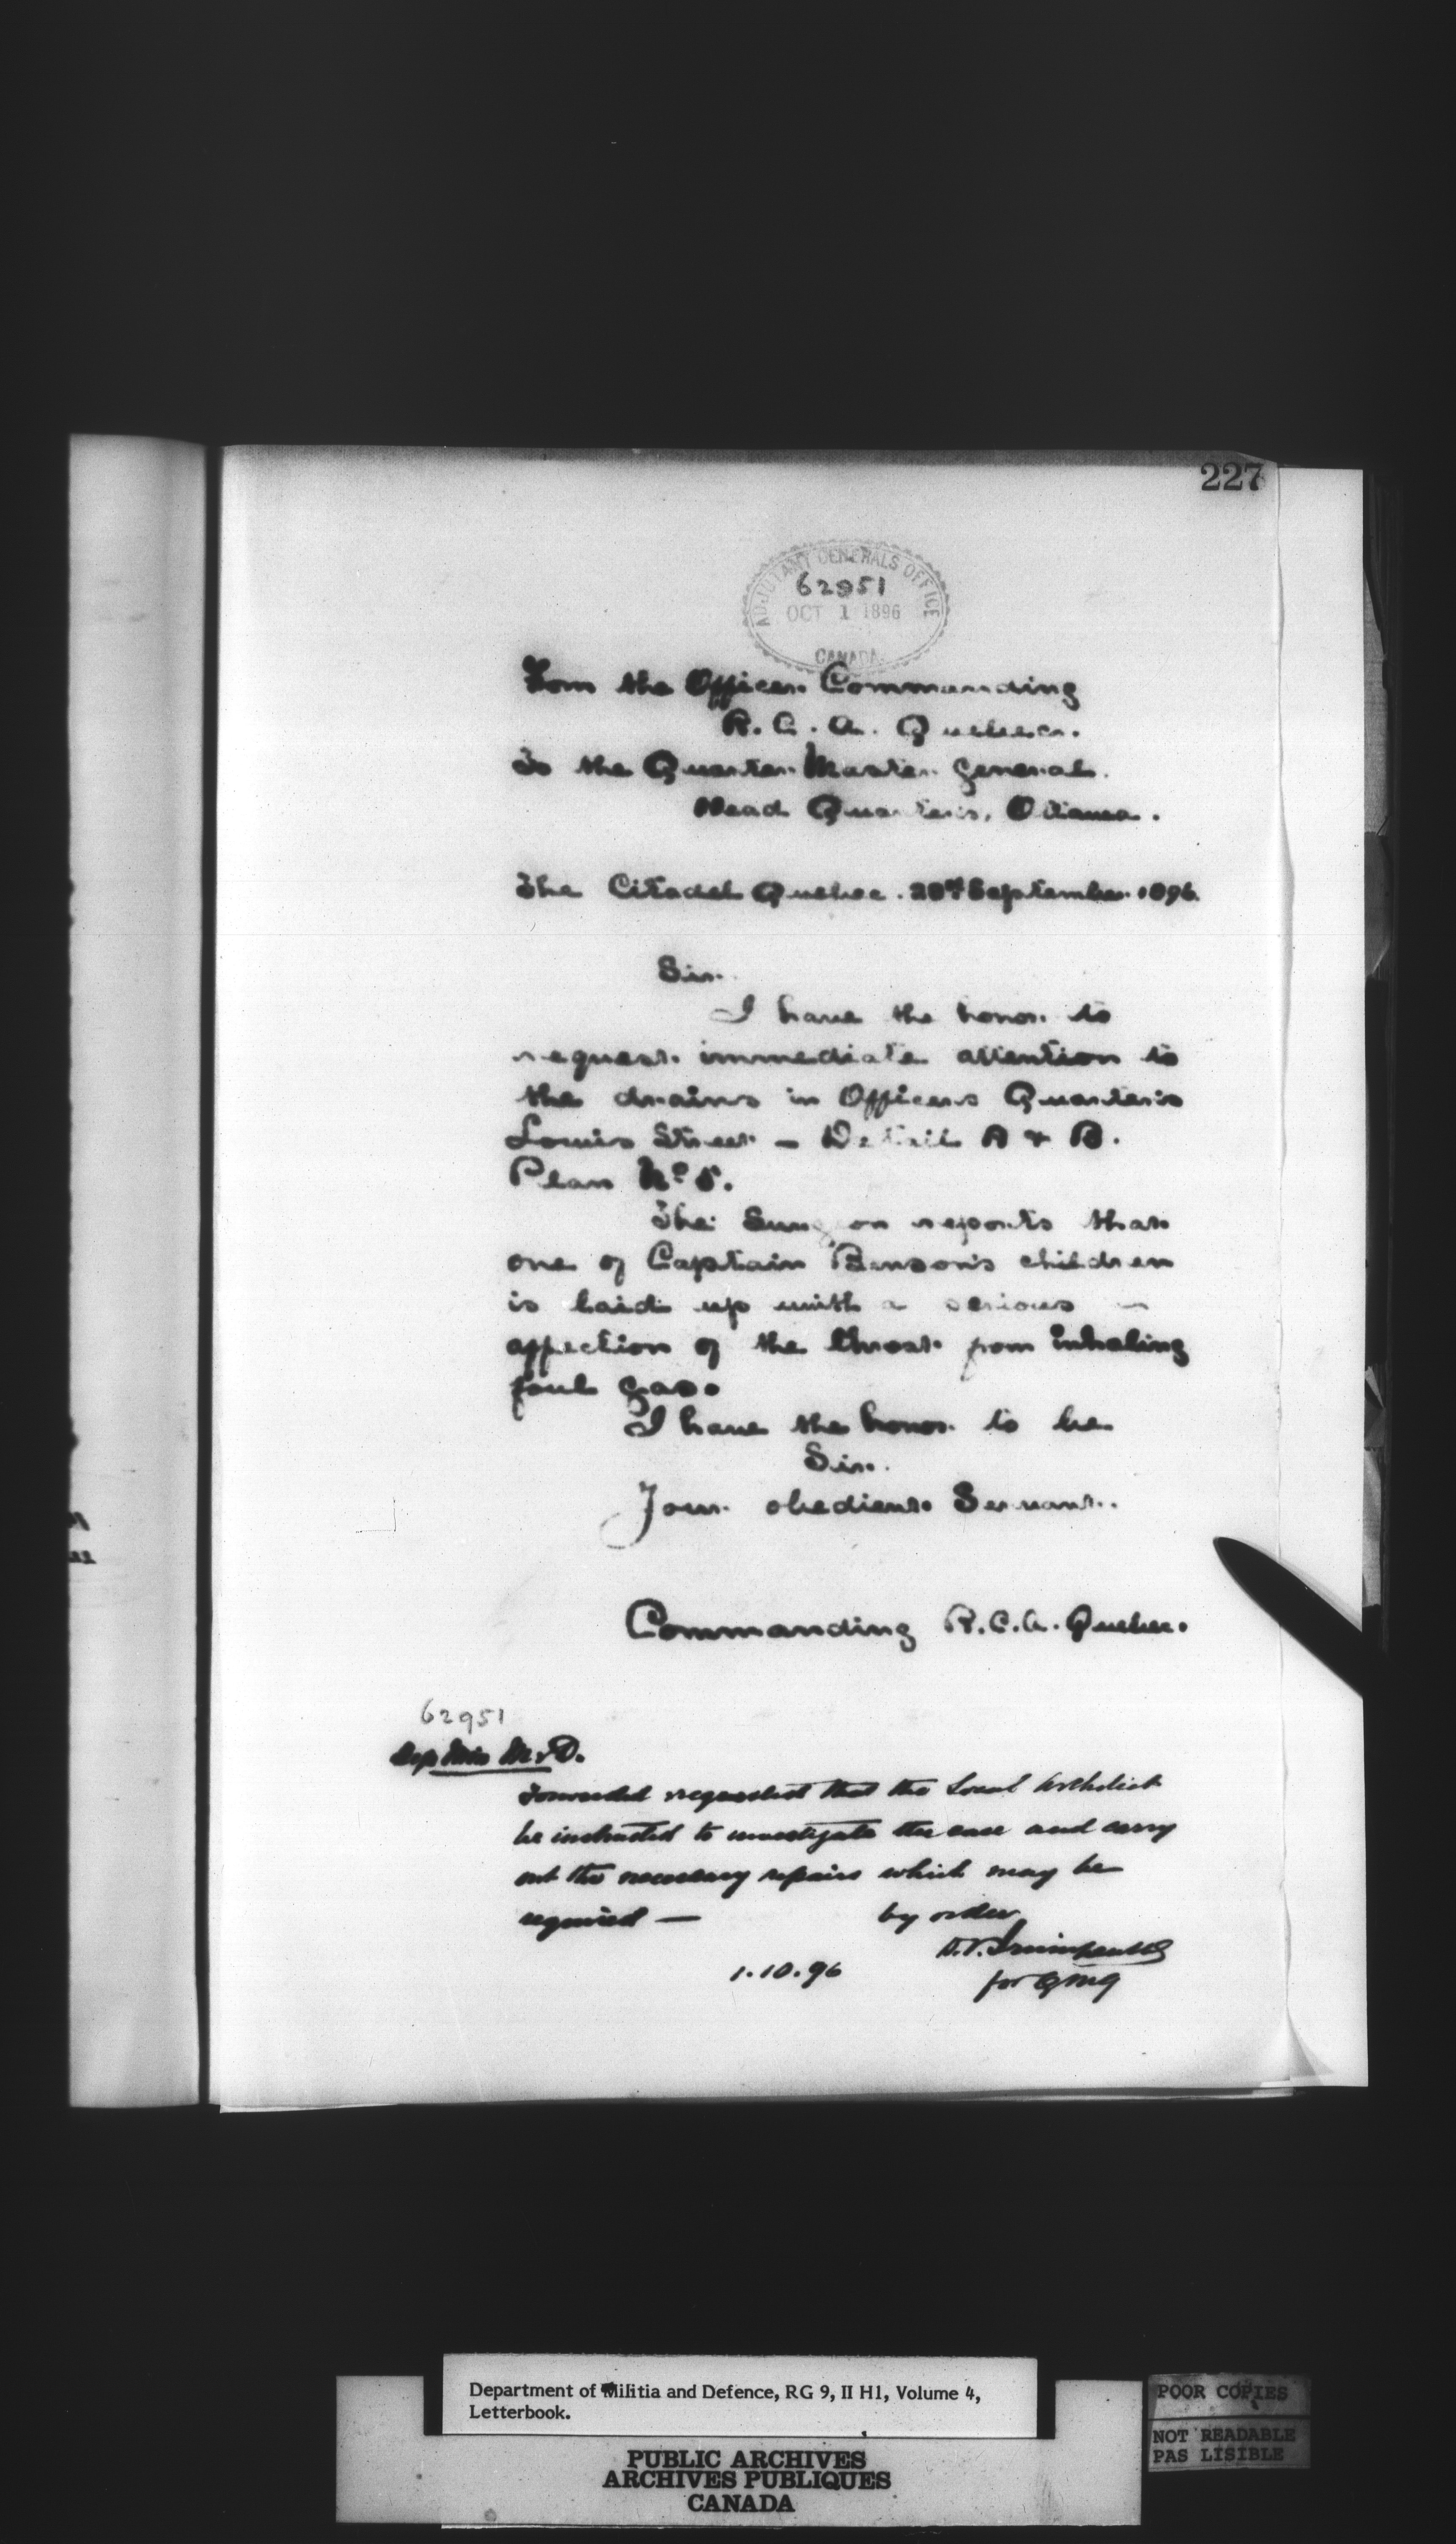 227
ADJUTANT GENERALS OFFICE
62951
OCT 1 1896
CANADA
From the Officer Commanding
R. C. A. Quebec.
To the Quarter Master General.
Head Quarters, Ottawa.
The Citadel Quebec. September 1896
Sir.
I have the honor to
request immediate attention to
the drains in Officers Quarters
Louis Street - Detail A & B.
Plan No 5.
The Surgeon reports that
one of Captain Benson's children
is laid up with a serious
affection of the throat from inhaling
foul gas.
I have the honor to be
Sir.
Your obedient Servant.
Commanding R.C.A. Quebec.
62951
Dep Min M & D.
Forwarded requested that the Local Architect
be instructed to investigate the case and carry
out the necessary repairs which may be
required —
by order
1.10.96
for QMG
Department of Militia and Defence, RG 9, II H1, Volume 4,
Letterbook.
PUBLIC ARCHIVES
ARCHIVES PUBLIQUES
CANADA
POOR COPIES
NOT READABLE
PAS LISIBLE